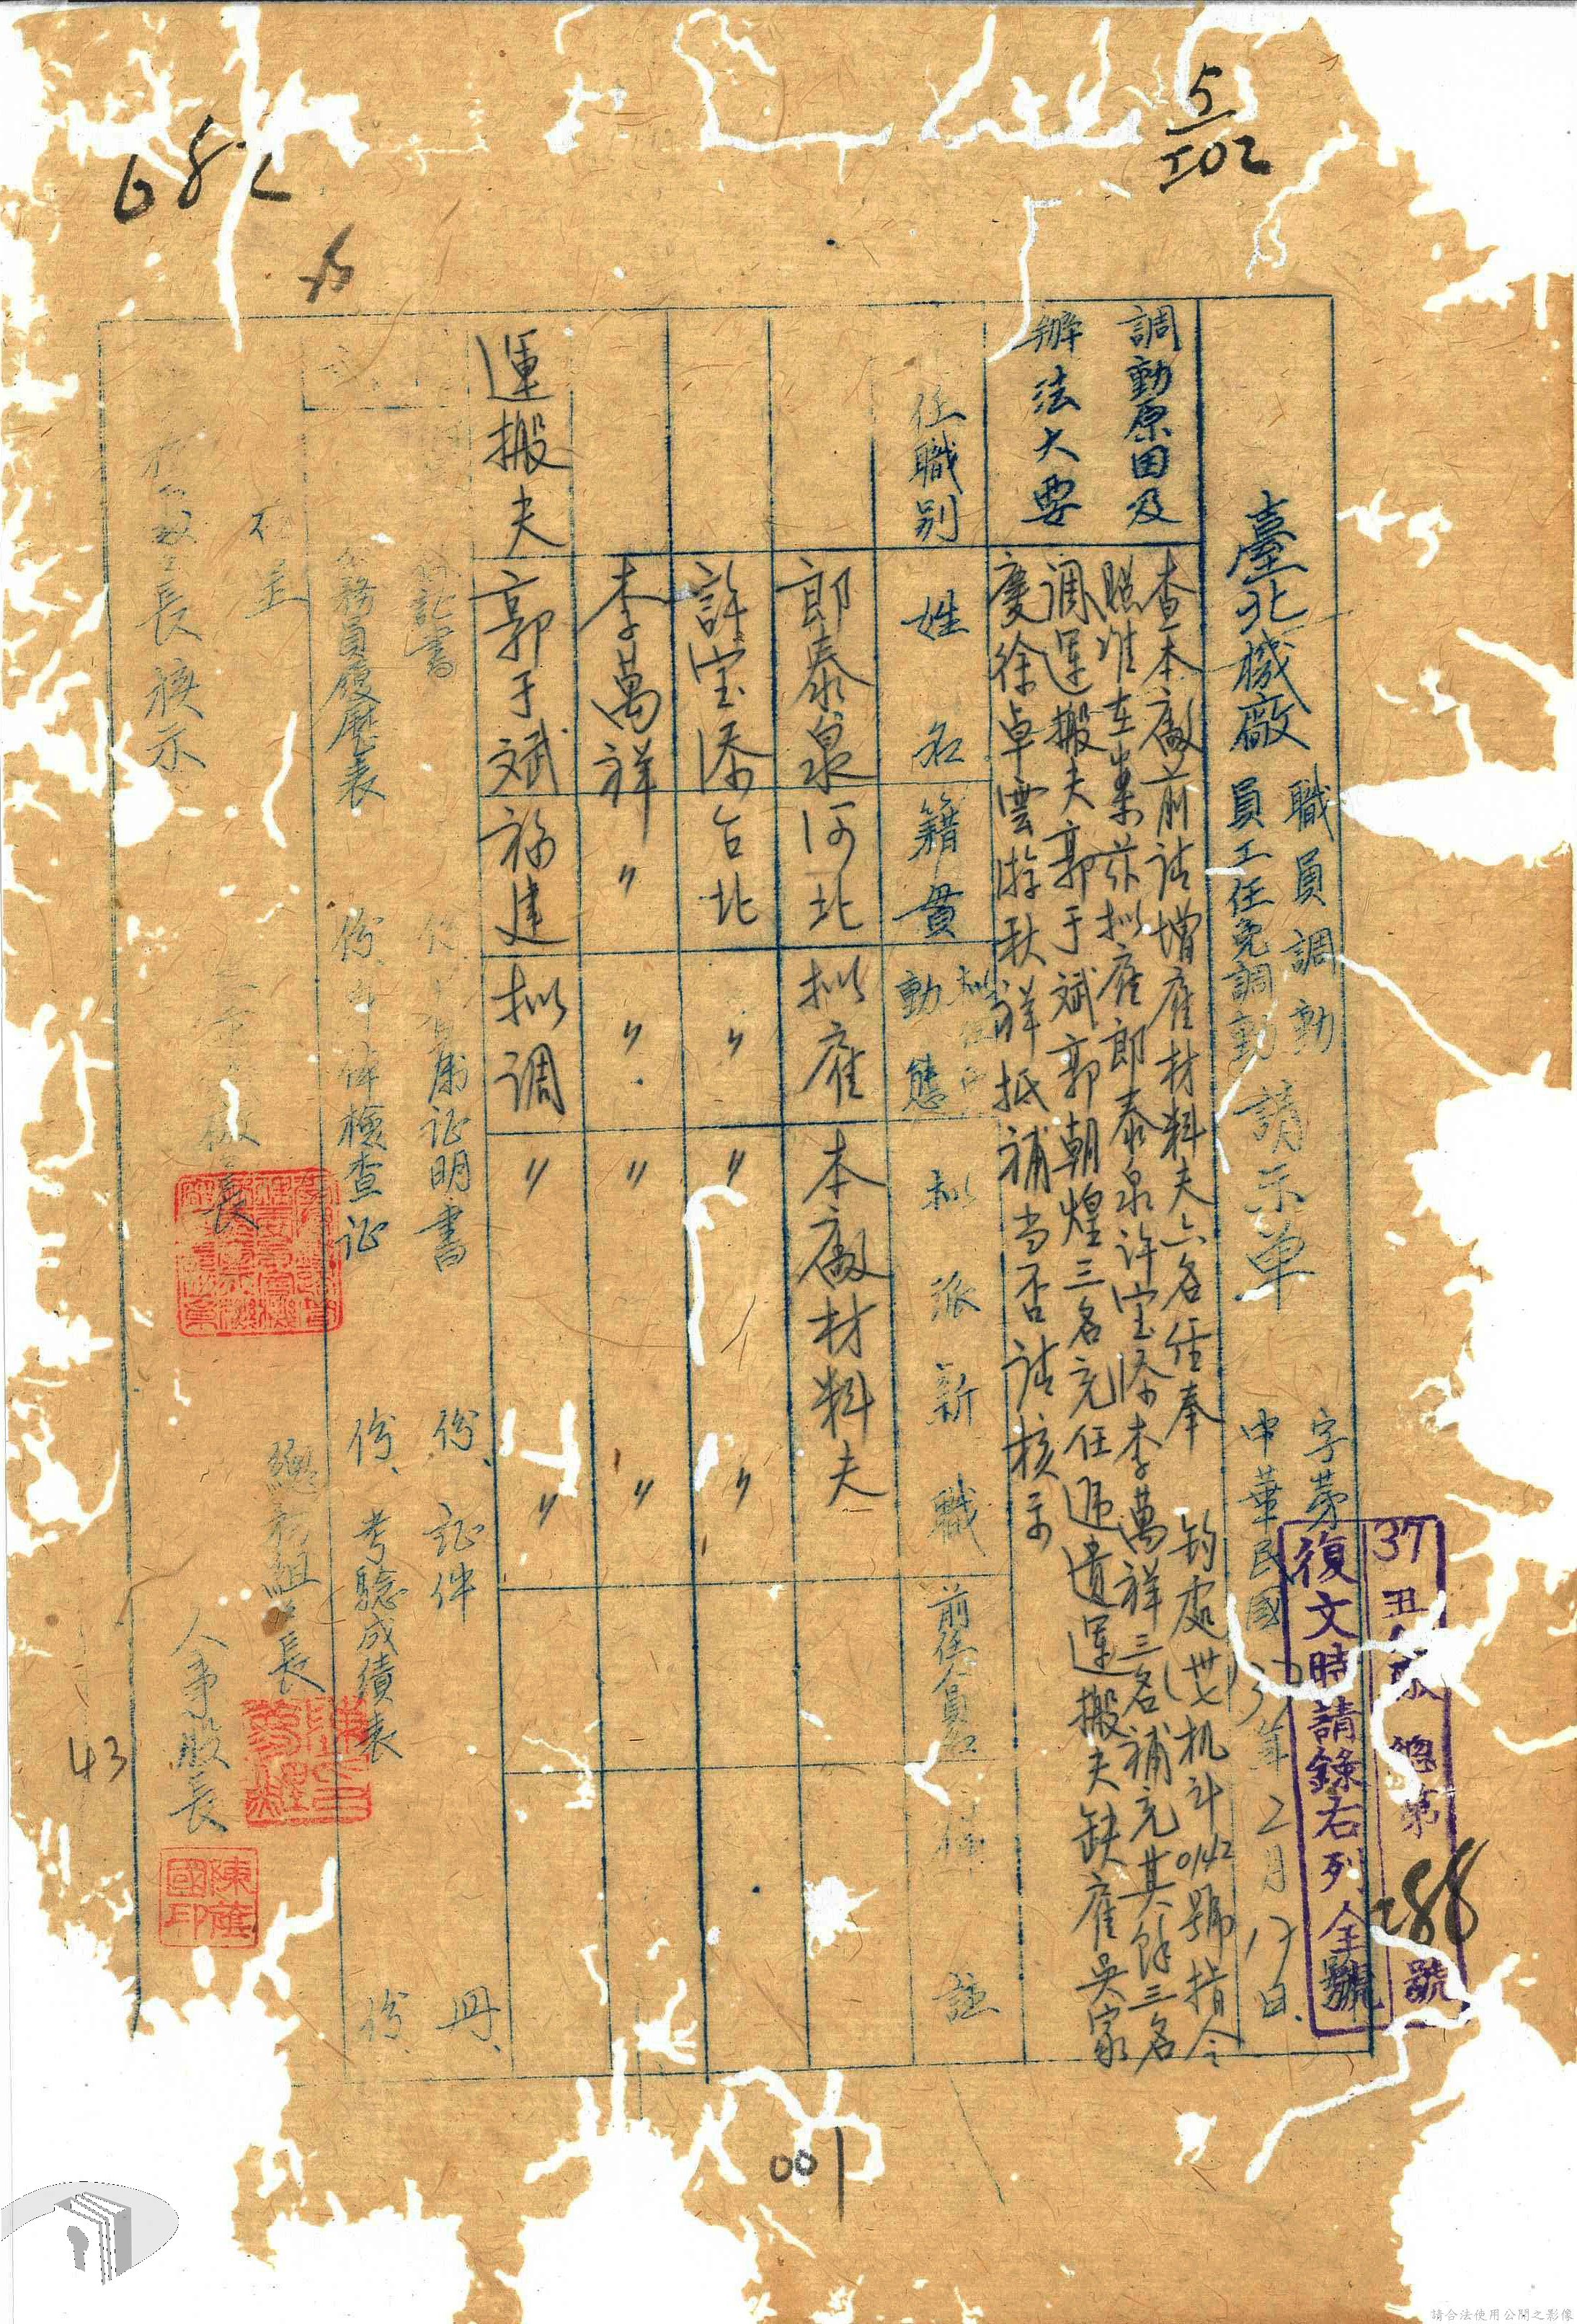 5/502
682
臺北機廠 職員調動 員工任免調動 請示单
字第
中華民國37年2月17日
37丑 總第288號
復文時請錄右列全號
調動原因及
辦法大要
查本廠前請增雇材料夫六名經奉 鈞處卅七机斗0142號指令
照准在案茲拟雇郎泰泉许宝添李萬祥三名補充其餘三名
调運搬夫郭于斌郭朝煌三名充任遞遺運搬夫缺雇吳家
慶徐卓雲游秋祥抵補当否请核示
任職別 姓名 籍貫 動態 拟派新職 前任人員名 註
郎泰泉 河北 拟雇 本廠材料夫
許宝添 台北 〃 〃 〃
李萬祥 〃 〃 〃 〃
運搬夫 郭于斌 福建 拟调 〃 〃
保証書 份 証明書 份、証件 冊、
公務員履歷表 份、身体檢查証 份、考驗成績表 份、
右呈
長核示
廠長
總務組長
人事股長
陳 國印
43
001
請合法使用公開之影像